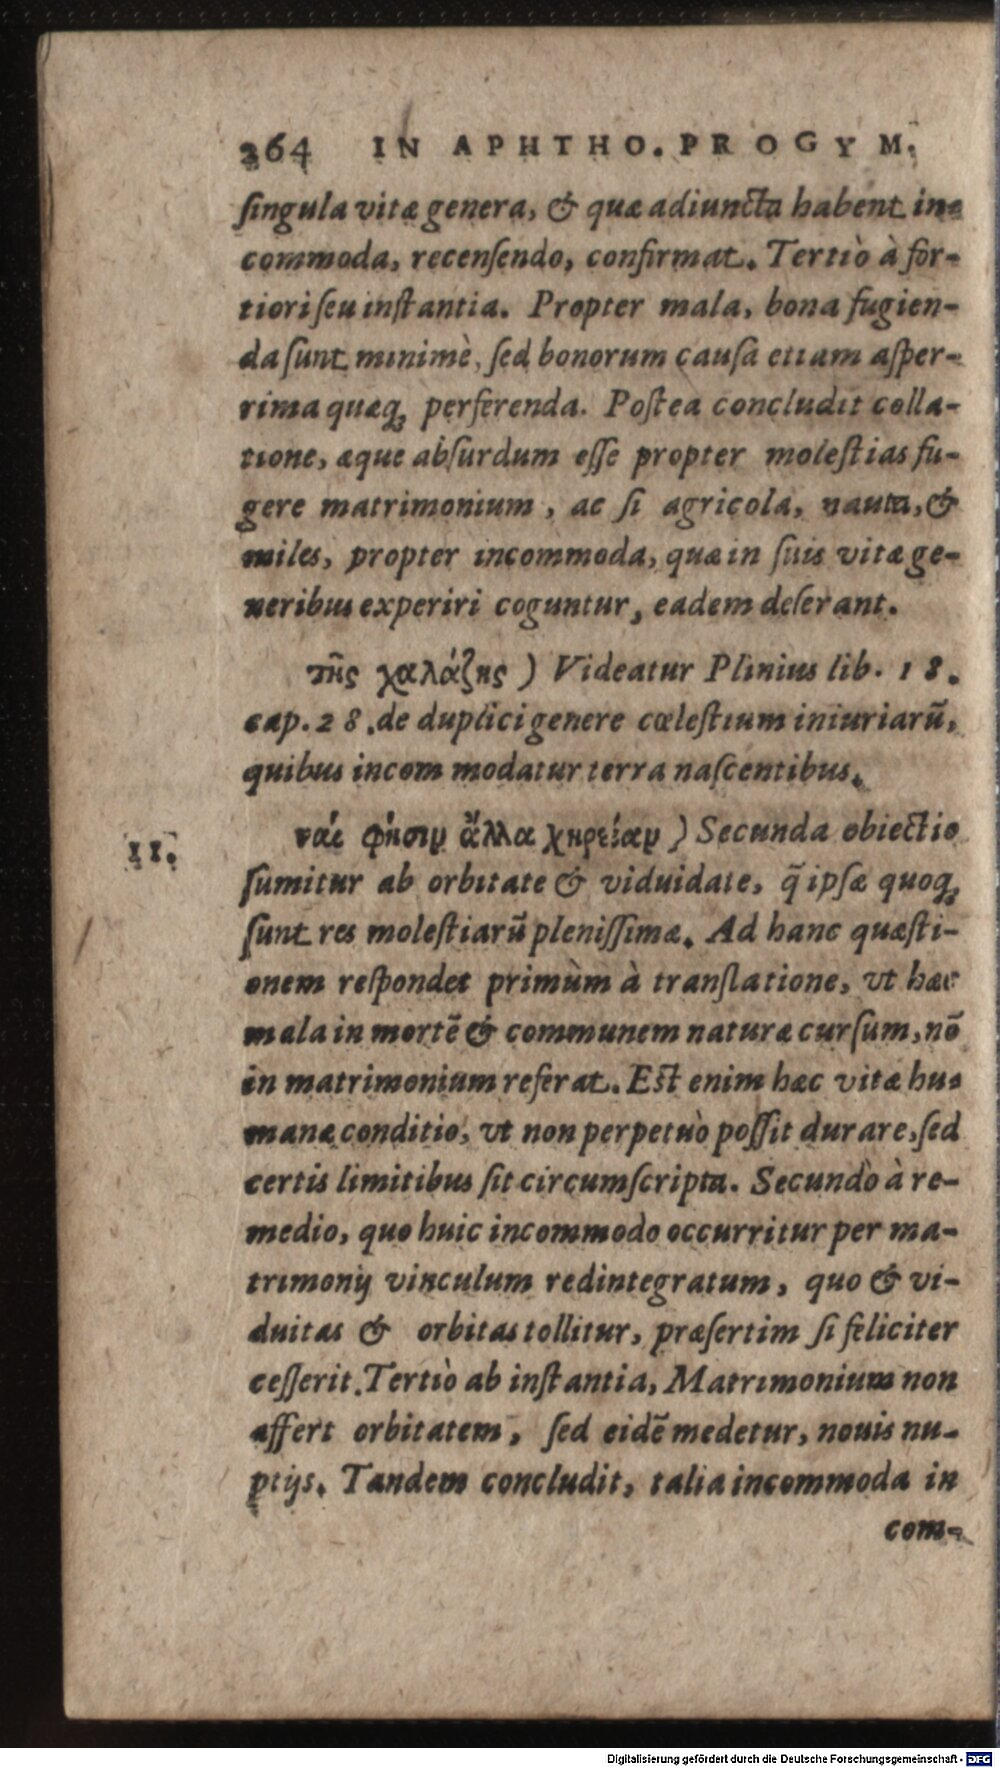 264 IN APHTHO. PROGYM.
ſingula vitæ genera, & quæ adiuncta habent in-
commoda, recenſendo, confirmat. Tertiò à for-
tiori ſeu inſtantia. Propter mala, bona fugien-
da ſunt minimè, ſed bonorum cauſa etiam aſper-
rima quæq; perferenda. Poſtea concludit colla-
tione, æque abſurdum eſſe propter moleſtias fu-
gere matrimonium, ac ſi agricola, nauta, &
miles, propter incommoda, quæ in ſuis vitæ ge-
neribus experiri coguntur, eadem deſerant.
τῆς χαλάζης ) Videatur Plinius lib. 18.
cap. 28. de duplici genere cœleſtium iniuriarū,
quibus incommodatur terra naſcentibus.
II.
ναί φησιν ἄλλα χηρείαν ) Secunda obiectio
ſumitur ab orbitate & viduidate, q̃ ipſæ quoq;
ſunt res moleſtiarū pleniſſimæ. Ad hanc quæſti-
onem reſpondet primùm à tranſlatione, vt hæc
mala in mortē & communem naturæ curſum, nō
in matrimonium referat. Eſt enim hæc vitæ hu-
manæ conditio, vt non perpetuò poſſit durare, ſed
certis limitibus ſit circumſcripta. Secundò à re-
medio, quo huic incommodo occurritur per ma-
trimonij vinculum redintegratum, quo & vi-
duitas & orbitas tollitur, præſertim ſi feliciter
ceſſerit. Tertiò ab inſtantia, Matrimonium non
affert orbitatem, ſed eidē medetur, nouis nu-
ptijs. Tandem concludit, talia incommoda in
com-
Digitalisierung gefördert durch die Deutsche Forschungsgemeinschaft - DFG